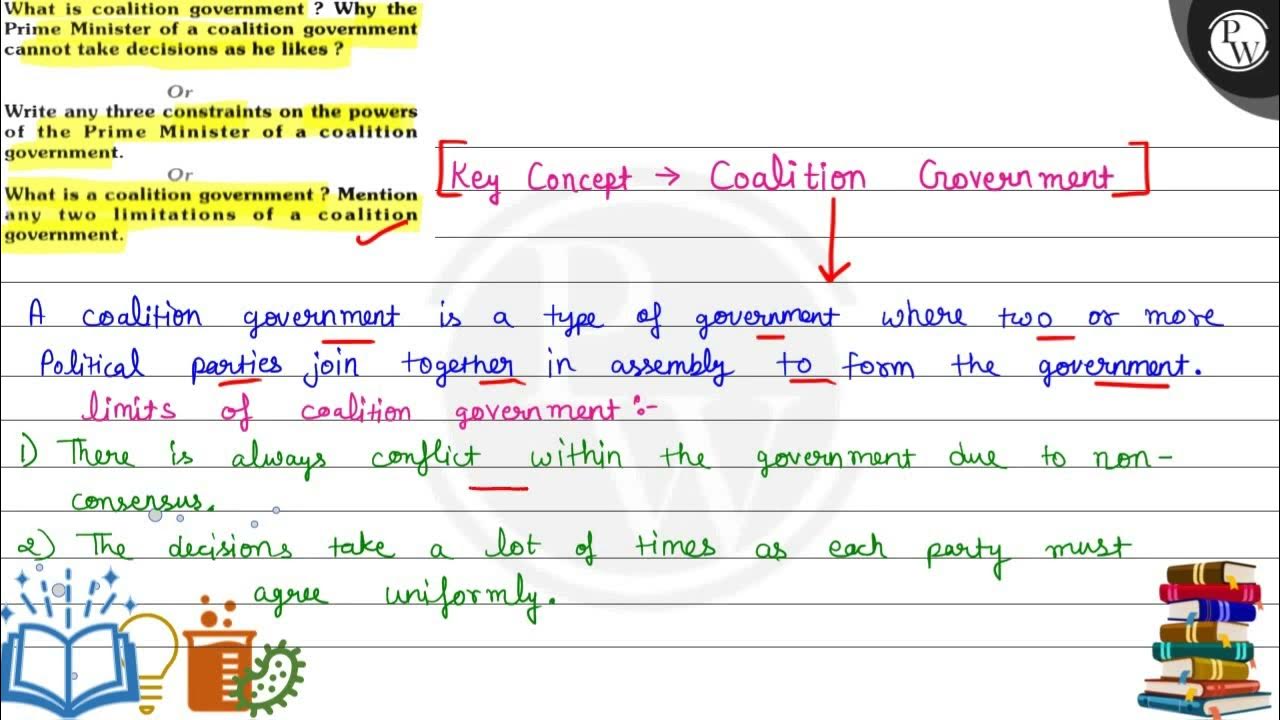 What is coalition government ? Why the
Prime Minister of a coalition government
cannot take decisions as he likes ?
Or
Write any three constraints on the powers
of the Prime Minister of a coalition
government.
Or
What is a coalition government ? Mention
any two limitations of a coalition
government.
PW
[Key Concept → Coalition Government]
A coalition government is a type of government where two or more
Political parties join together in assembly to form the government.
limits of coalition government :-
1) There is always conflict within the government due to non-
consensus.
2) The decisions take a lot of times as each party must
agree uniformly.